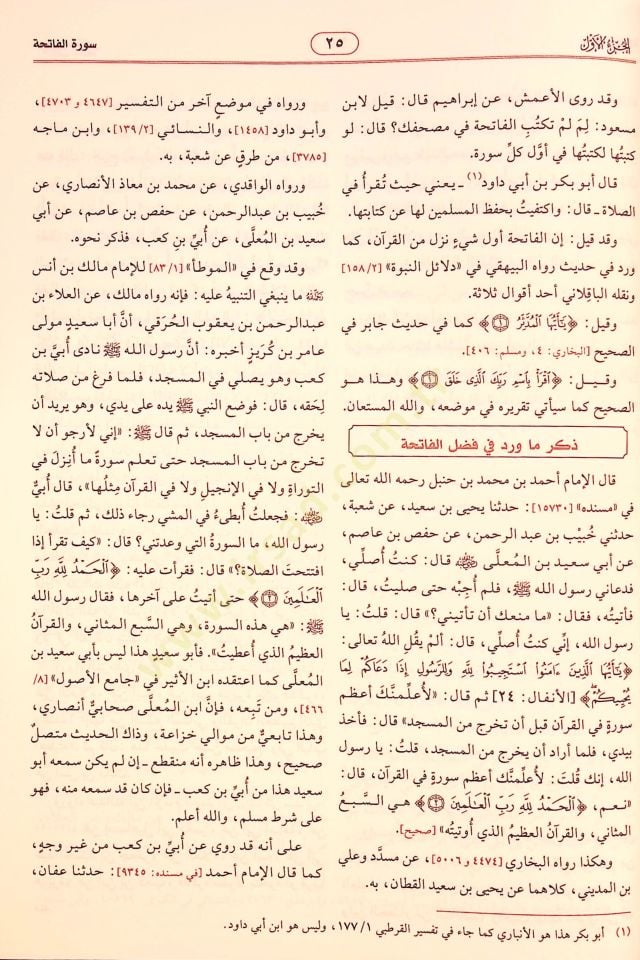 الجزء الأول
٢٥
سورة الفاتحة
وقد روى الأعمش، عن إبراهيم قال: قيل لابن
مسعود: لِمَ لَمْ تكتُبِ الفاتحة في مصحفك؟ قال: لو
كتبتُها لكتبتُها في أوَّل كلِّ سورة.
قال أبو بكر بن أبي داود(١) ـ يعني حيث تُقرأ في
الصلاة ـ قال: واكتفيتُ بحفظ المسلمين لها عن كتابتها.
وقد قيل: إن الفاتحة أول شيءٍ نزل من القرآن، كما
ورد في حديث رواه البيهقي في «دلائل النبوة» [٢/ ١٥٨]
ونقله الباقِلاني أحد أقوال ثلاثة.
وقيل: ﴿يَٰٓأَيُّهَا ٱلْمُدَّثِّرُ ۝١﴾ كما في حديث جابر في
الصحيح [البخاري: ٤، ومسلم: ٤٠٦].
وقيل: ﴿ٱقْرَأْ بِٱسْمِ رَبِّكَ ٱلَّذِى خَلَقَ ۝١﴾ وهذا هو
الصحيح كما سيأتي تقريره في موضعه، والله المستعان.
ذكر ما ورد في فضل الفاتحة
قال الإمام أحمد بن محمد بن حنبل رحمه الله تعالى
في «مسنده» [١٥٧٣٠]: حدثنا يحيى بن سعيد، عن شعبة،
حدثني خُبيْب بن عبد الرحمن، عن حفص بن عاصم،
عن أبي سعيد بن المُعلَّى ﷺ قال: كنتُ أُصلِّي،
فدعاني رسول الله ﷺ، فلم أُجِبْه حتى صليتُ، قال:
فأتيتُه، فقال: «ما منعك أن تأتيني؟» قال: قلتُ: يا
رسول الله، إنِّي كنتُ أُصلِّي، قال: ألمْ يقُلِ اللهُ تعالى:
﴿يَٰٓأَيُّهَا ٱلَّذِينَ ءَامَنُوا۟ ٱسْتَجِيبُوا۟ لِلَّهِ وَلِلرَّسُولِ إِذَا دَعَاكُمْ لِمَا
يُحْيِيكُمْ﴾ [الأنفال: ٢٤] ثم قال: «لأُعلِّمنَّكَ أعظم
سورةٍ في القرآن قبل أن تخرج من المسجد» قال: فأخذ
بيدي، فلما أراد أن يخرج من المسجد، قلتُ: يا رسول
الله، إنك قُلتَ: لأُعلِّمنَّك أعظم سورةٍ في القرآن، قال:
«نعم، ﴿ٱلْحَمْدُ لِلَّهِ رَبِّ ٱلْعَٰلَمِينَ ۝٢﴾ هي السَّبعُ
المثاني، والقرآن العظيمُ الذي أُوتيتُه» [صحيح].
وهكذا رواه البخاري [٤٤٧٤ و ٥٠٠٦]، عن مسدَّد وعلي
بن المديني، كلاهما عن يحيى بن سعيد القطان، به.
ورواه في موضعٍ آخر من التفسير [٤٦٤٧ و ٤٧٠٣]،
وأبو داود [١٤٥٨]، والنسائي [٢/ ١٣٩]، وابن ماجه
[٣٧٨٥]، من طرقٍ عن شعبة، به.
ورواه الواقدي، عن محمد بن معاذ الأنصاري، عن
خُبيب بن عبدالرحمن، عن حفص بن عاصم، عن أبي
سعيد بن المُعلَّى، عن أُبيِّ بنِ كعب، فذكر نحوه.
وقد وقع في «الموطأ» [١/ ٨٣] للإمام مالك بن أنس
رحمه الله ما ينبغي التنبيهُ عليه: فإنه رواه مالك، عن العلاء بن
عبدالرحمن بن يعقوب الحُرَقي، أنَّ أبا سعيدٍ مولى
عامر بن كُرَيزٍ أخبره: أنَّ رسول الله ﷺ نادى أُبيَّ بن
كعب وهو يصلي في المسجد، فلما فرغ من صلاته
لِحقه، قال: فوضع النبي ﷺ يده على يدي، وهو يريد أن
يخرج من باب المسجد، ثم قال ﷺ: «إني لأرجو أن لا
تخرج من باب المسجد حتى تعلم سورةً ما أُنزِلَ في
التوراةِ ولا في الإنجيلِ ولا في القرآن مِثلُها»، قال أُبيٌّ
ﷺ: فجعلتُ أُبطىءُ في المشي رجاء ذلك، ثم قلتُ: يا
رسول الله، ما السورةُ التي وعدتني؟ قال: «كيف تقرأ إذا
افتتحتَ الصلاة؟» قال: فقرأت عليه: ﴿ٱلْحَمْدُ لِلَّهِ رَبِّ
ٱلْعَٰلَمِينَ ۝٢﴾ حتى أتيتُ على آخرها، فقال رسول الله
ﷺ: «هي هذه السورة، وهي السَّبع المثاني، والقرآنُ
العظيمُ الذي أُعطيتُ». فأبو سعيدٍ هذا ليس بأبي سعيد بن
المُعلَّى كما اعتقده ابن الأثير في «جامع الأصول» [٨/
٤٦٦]، ومن تَبِعه، فإنَّ ابن المُعلَّى صحابيٌّ أنصاري،
وهذا تابعيٌّ من موالي خزاعة، وذاك الحديث متصلٌ
صحيح، وهذا ظاهره أنه منقطع ـ إن لم يكن سمعه أبو
سعيد هذا من أُبيِّ بن كعب ـ فإن كان قد سمعه منه، فهو
على شرط مسلم، والله أعلم.
على أنه قد روي عن أُبيِّ بن كعب من غير وجهٍ،
كما قال الإمام أحمد [في مسنده: ٩٣٤٥]: حدثنا عفان،
(١) أبو بكر هذا هو الأنباري كما جاء في تفسير القرطبي ١/ ١٧٧، وليس هو ابن أبي داود.